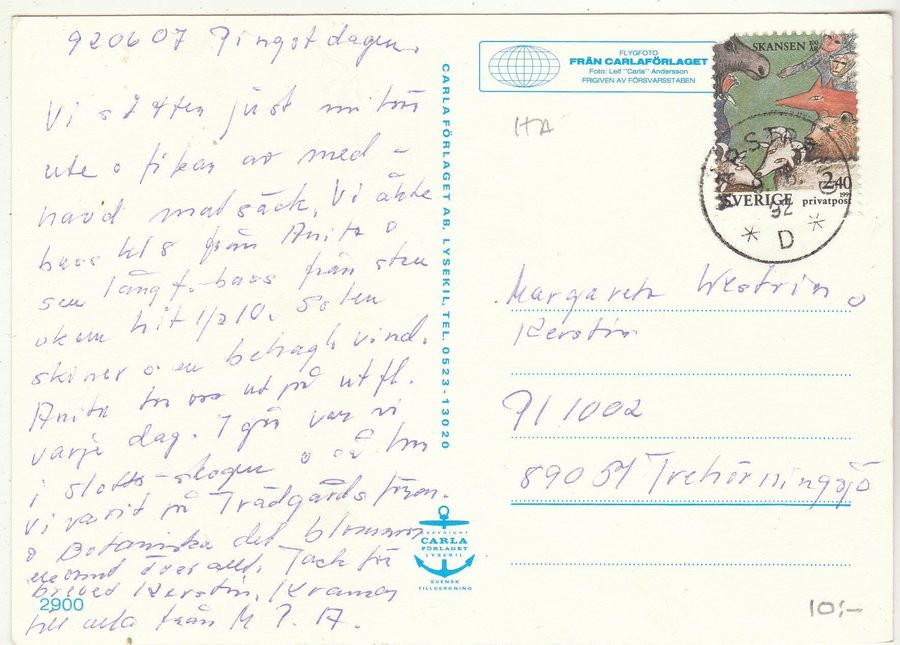 920607 Pingstdagen.
Vi sitter just nu
ute o fikar av med-
havd matsäck. Vi åkte
buss kl 8 från Anita o
sen långf.-buss från
hit 1/2 10. Solen
skiner o en behagl. vind.
Anita tar oss ut på utfl.
varje dag. I går var vi
i slotts-skogen o så har
vi varit på Trädgårdsfören.
o Botaniska det blommar
enormt överallt. Tack för
brevet Kerstin. Kramar
till alla från M P. A.
2900
CARLAFÖRLAGET AB, LYSEKIL, TEL. 0523-13020
FLYGFOTO
FRÅN CARLAFÖRLAGET
Foto: Leif "Carla" Andersson
FRIGIVEN AV FÖRSVARSSTABEN
HA
SKANSEN
2.40
SVERIGE privatpost
92
* D *
Margareta Westrin o
Kerstin
Pl 1002
890 54 Trehörningsjö
COPYRIGHT
CARLA
FÖRLAGET
LYSEKIL
SVENSK
TILLVERKNING
10:-